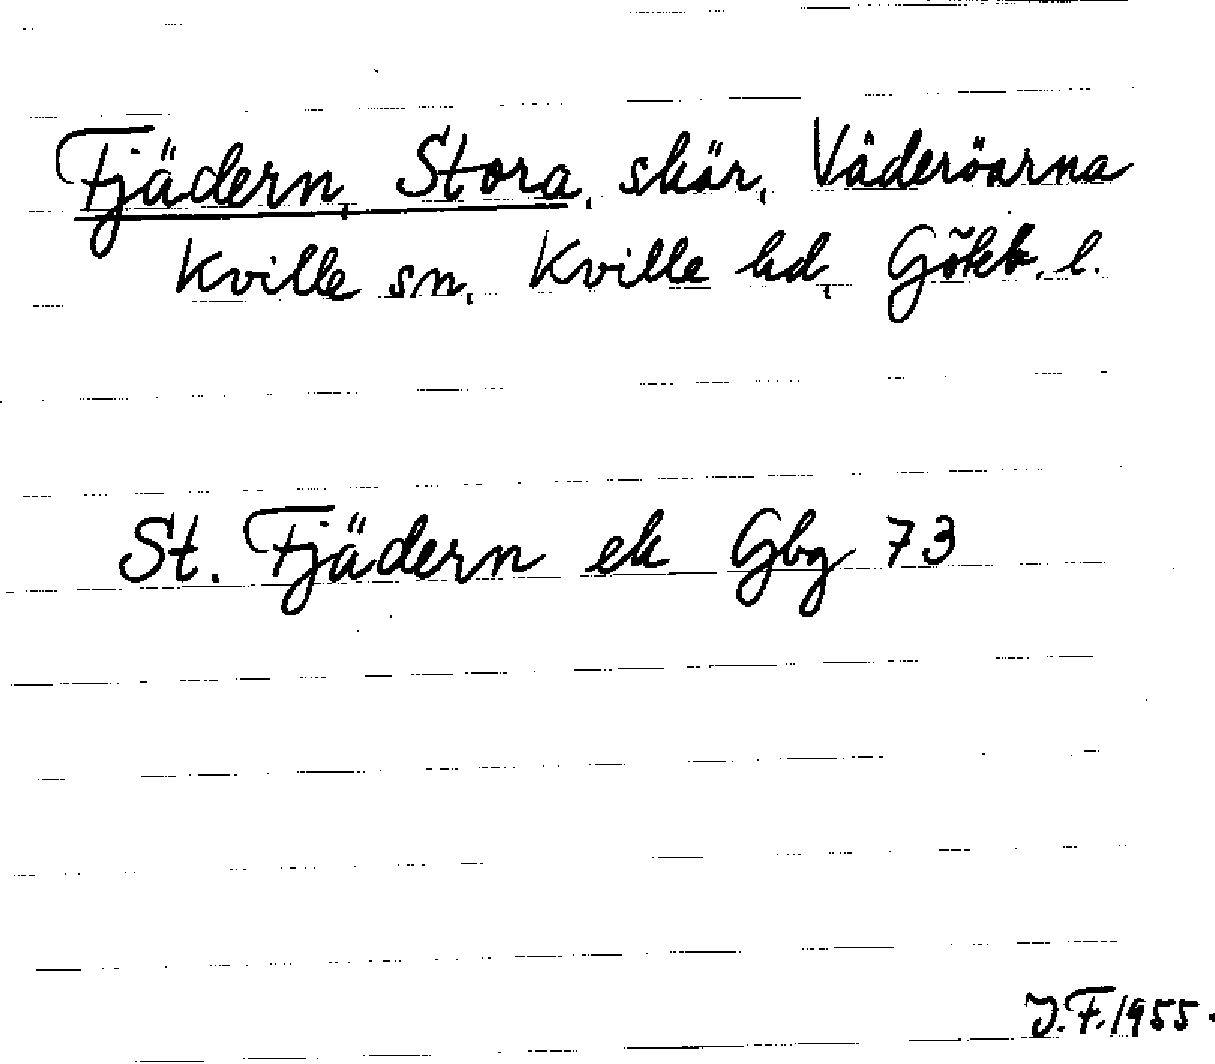 Fjädern, Stora, skär, Väderöarna
Kville sn, Kville hd, Gökb. l.
St. Fjädern ek Gbg 73
J.F. 1955.